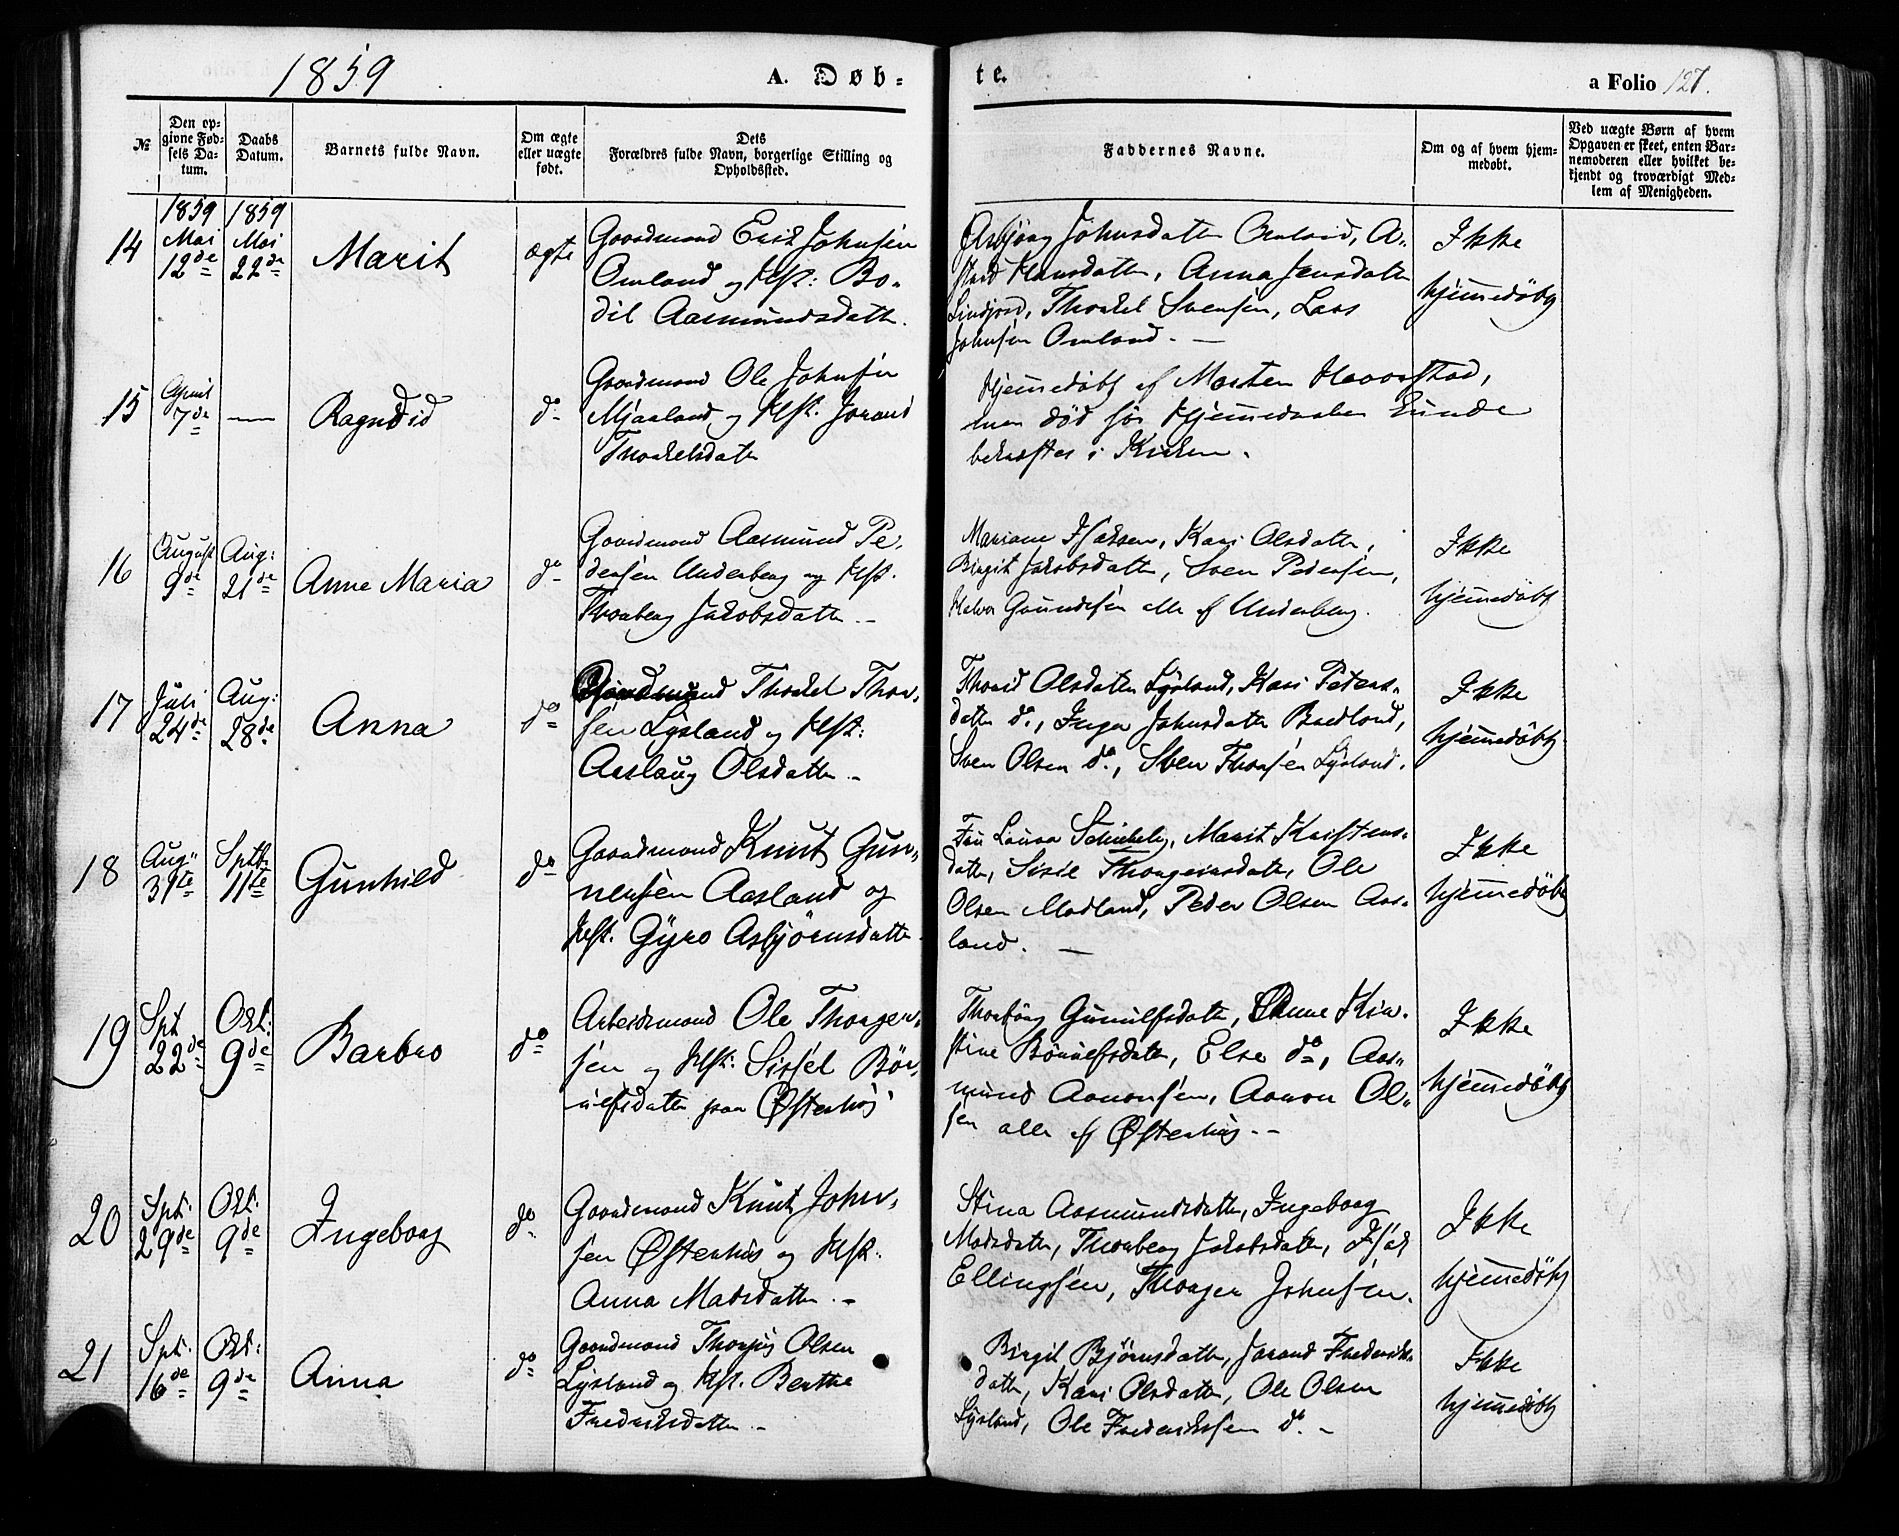 1859
A. Døb-
te.
a Folio 127.
№
Den op-
givne Fød-
sels Da-
tum.
Daabs
Datum.
Barnets fulde Navn.
Om ægte
eller uægte
født.
Dets
Forældres fulde Navn, borgerlige Stilling og
Opholdssted.
Faddernes Navne.
Om og af hvem hjem-
medøbt.
Ved uægte Børn af hvem
Opgaven er skeet, enten Bar-
nemoderen eller hvilket be-
kjendt og troværdigt Med-
lem af Menigheden.
14
1859
Mai
12de
1859
Mai
22de
Marit
ægte
Gaardmand Erik Johnsen
Omland og Hst: Bo-
dil Aasmundsdatter.
Asbjørg Johnsdatter Omland, A-
strid Hansdatter, Anna Jensdatter
Lindjord, Thorkel Svensen, Lars
Johnsen Omland. —
Ikke
hjemmedøbt
15
April
7de
—
Ragndid
do
Gaardmand Ole Johnsen
Mjaaland og Hst. Jorand
Thorkelsdatter
Hjemmedøbt af Morten Haavrstad,
men død før Hjemmedaaben kunde
bekræftes i Kirken.
16
August
9de
Aug:
21de
Anne Maria
do
Gaardmand Aasmund Pe-
dersen Underberg og Hst.
Thorberg Jakobsdatter. -
Mariane Isaksen, Kari Olsdatter,
Birgit Jakobsdatter, Sven Pedersen,
Halvor Gundersen alle af Underberg.
Ikke
hjemmedøbt
17
Juli
24de
Aug:
28de
Anna
do
Gaardmand Thorkel Thor-
sen Lysland og Hst:
Aaslaug Olsdatter. -
Thorid Olsdatter Lysland, Kari Peders-
datter do., Inger Johnsdatter Bredland,
Sven Olsen do., Sven Thorsen Lysland.
Ikke
hjemmedøbt
18
Aug"
31te
Sptb.
11te
Gunhild
do
Gaardmand Knut Gun-
nersen Aasland og
Hst. Gyro Asbjørnsdatter
Fru Laura Schieldrup, Marit Kristens-
datter, Sissel Thorgeirsdatter, Ole
Olsen Modland, Peder Olsen Aas-
land. —
Ikke
hjemmedøbt
19
Spt
22de
Okt:
9de
Barbro
do
Arbeidsmand Ole Thorger-
sen og Hst: Sissel Bør-
ulfsdatter paa Østerhus
Thorbjørg Gunulfsdatter, Anne Kir-
stine Børulfsdatter, Else do, Aas-
mund Aanonsen, Aanon Ol-
sen alle af Østerhus. -
Ikke
hjemmedøbt
20
Spt.
29de
Okt.
9de
Ingeborg
do
Gaardmand Knut John-
sen Østerhus og Hst.
Anna Madsdatter. -
Stina Aasmundsdatter, Ingeborg
Madsdatter, Thorberg Jakobsdatter, Isak
Ellingsen, Thorger Johnsen.
Ikke
hjemmedøbt
21
Spt.
16de
Okt:
9de
Anna
do
Gaardmand Thorjus Olsen
Lysland og Hst. Berthe
Fredriksdatter. -
Birgit Bjørnsdatter, Jorand Frederiks-
datter, Kari Olsdatter, Ole Olsen
Lysland, Ole Frederiksen do. -
Ikke
hjemmedøbt